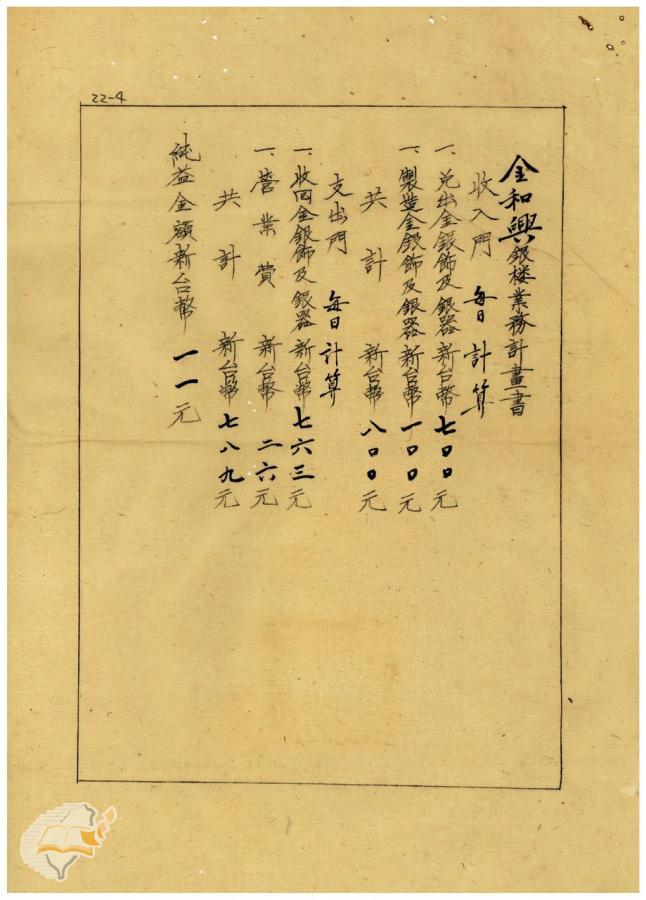 22-4
金和興銀楼業務計畫書
收入門 每日計算
一、兌出金銀飾及銀器新台幣七〇〇元
一、製造金銀飾及銀器新台幣一〇〇元
共計 新台幣八〇〇元
支出門 每日計算
一、收回金銀飾及銀器新台幣七六三元
一、營業費 新台幣 二六元
共計 新台幣七八九元
純益金額新台幣 一一元